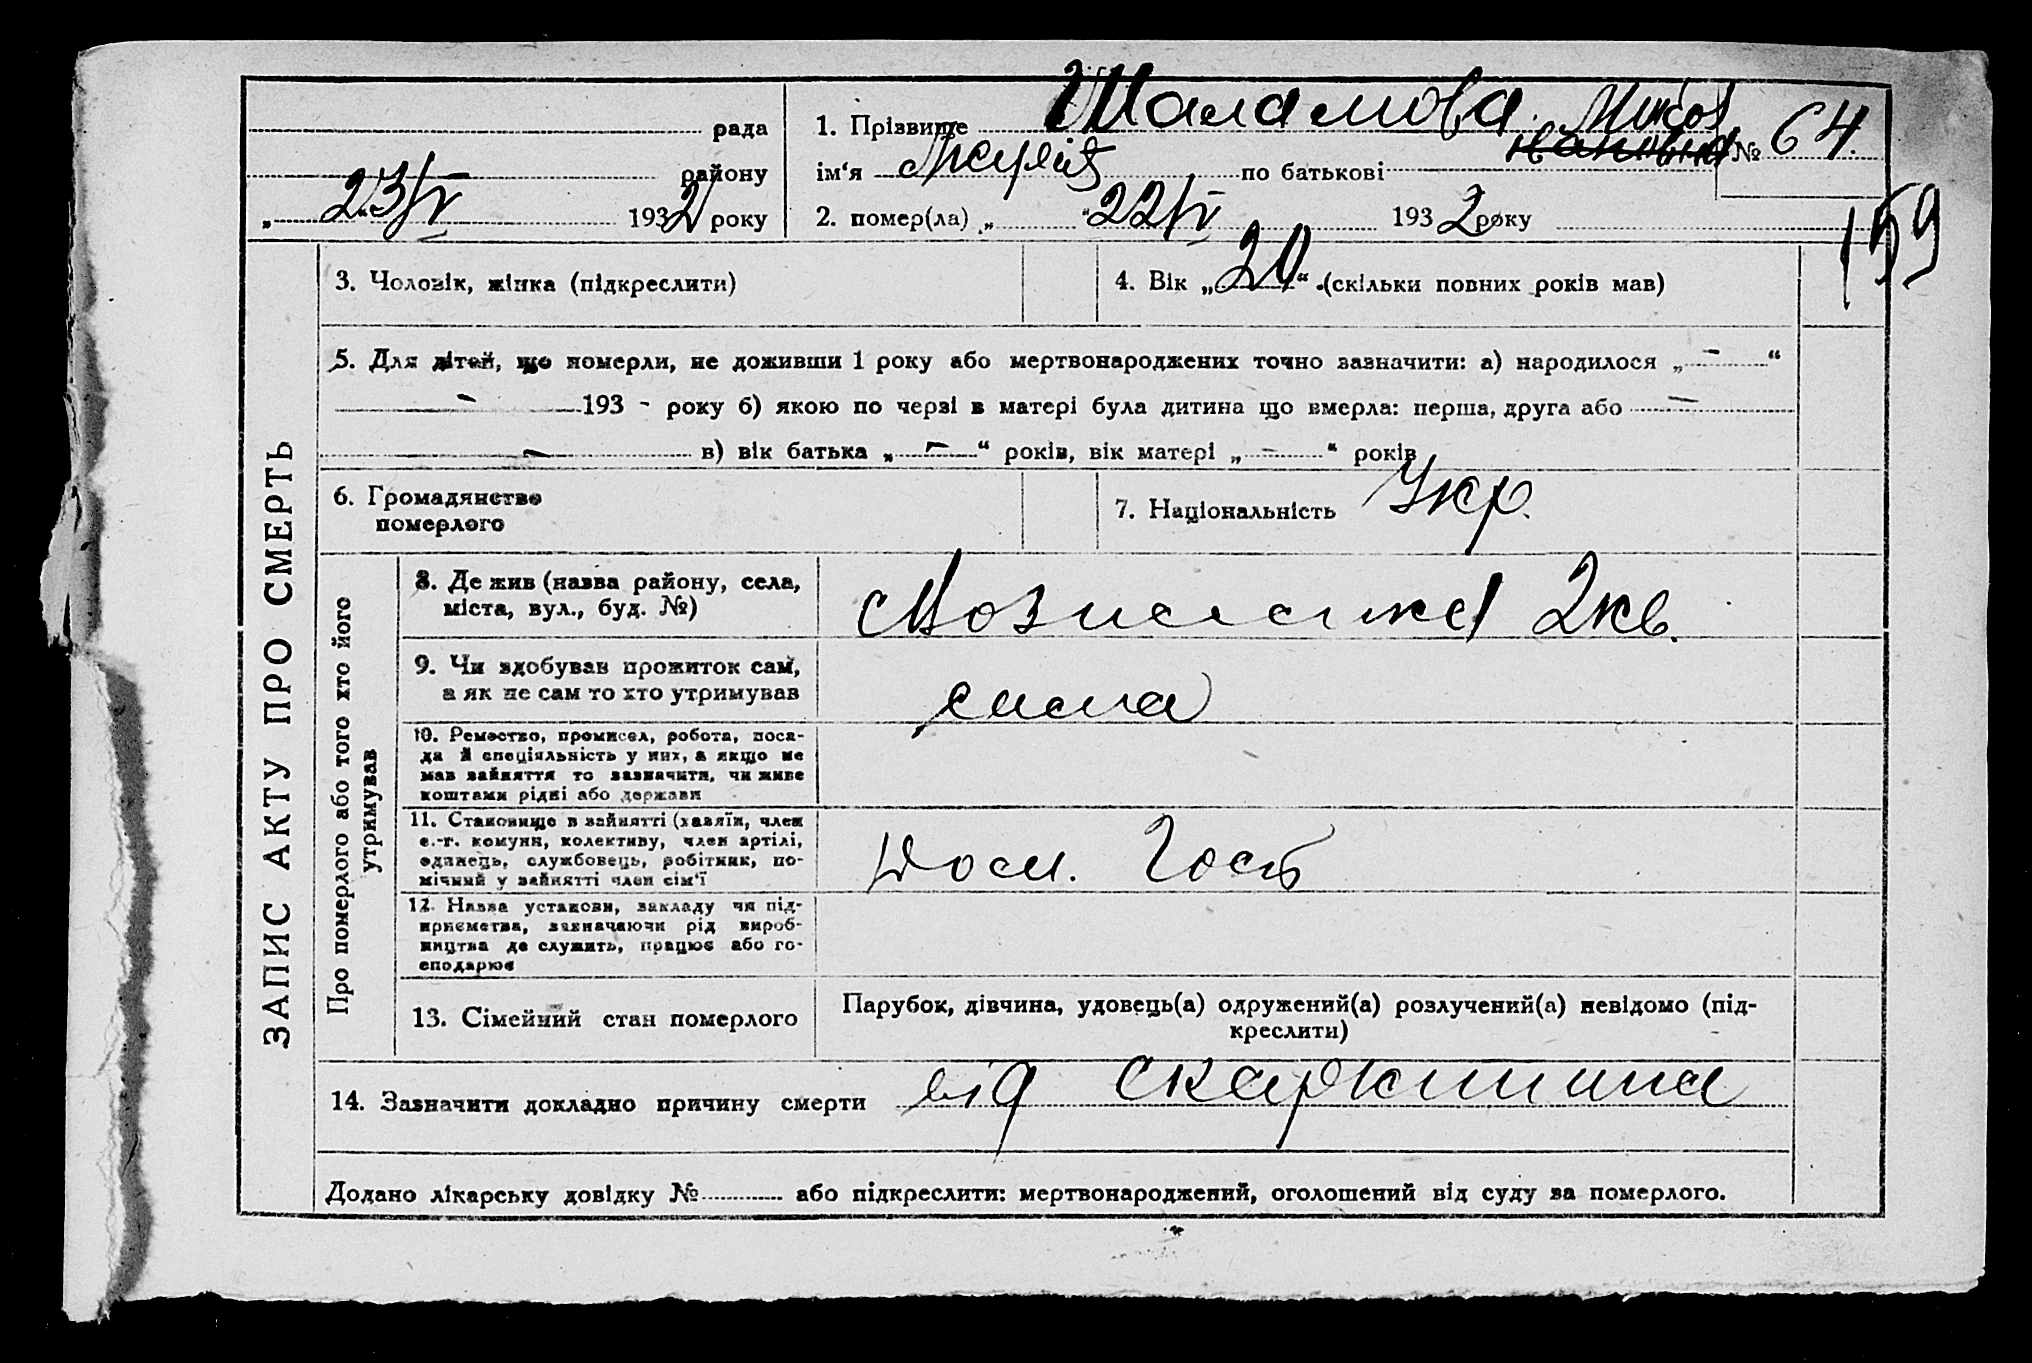 рада
району
„ 23/V 1932 року
1. Прізвище Шаламова. № 64.
ім‘я Марія по батькові
2. помер(ла) „ “ 22/V 1932 року
159
ЗАПИС АКТУ ПРО СМЕРТЬ
3. Чоловік, жінка (підкреслити)
4. Вік „20“ (скільки повних років мав)
5. Для дітей, що померли, не доживши 1 року або мертвонароджених точно зазначити: а) народилося „ - “
- 193 - року б) якою по черзі в матері була дитина що вмерла: перша, друга або -
- в) вік батька „ - “ років, вік матері „ - “ років
6. Громадянство
померлого
7. Національність Укр.
Про померлого або того хто його
утримував
8. Де жив (назва району, села,
міста, вул., буд. №)
2 кв.
9. Чи здобував прожиток сам,
а як не сам то хто утримував
сама
10. Ремество, промисел, робота, поса-
да й спеціяльність у них, а якщо не
мав зайняття то зазначити, чи живе
коштами рідні або держави
11. Становище в зайнятті (хазяїн, член
с.-г. комуни, колективу, член артілі,
одинець, службовець, робітник, по-
мічний у зайнятті член сім‘ї
Дом. Госп
12. Назва установи, закладу чи під-
приємства, зазначаючи рід вироб-
ництва де служить, працює або го-
сподарює
13. Сімейний стан померлого
Парубок, дівчина, удовець(а) одружений(а) розлучений(а) невідомо (під-
креслити)
14. Зазначити докладно причину смерти від скарлатина
Додано лікарську довідку № або підкреслити: мертвонароджений, оголошений від суду за померлого.